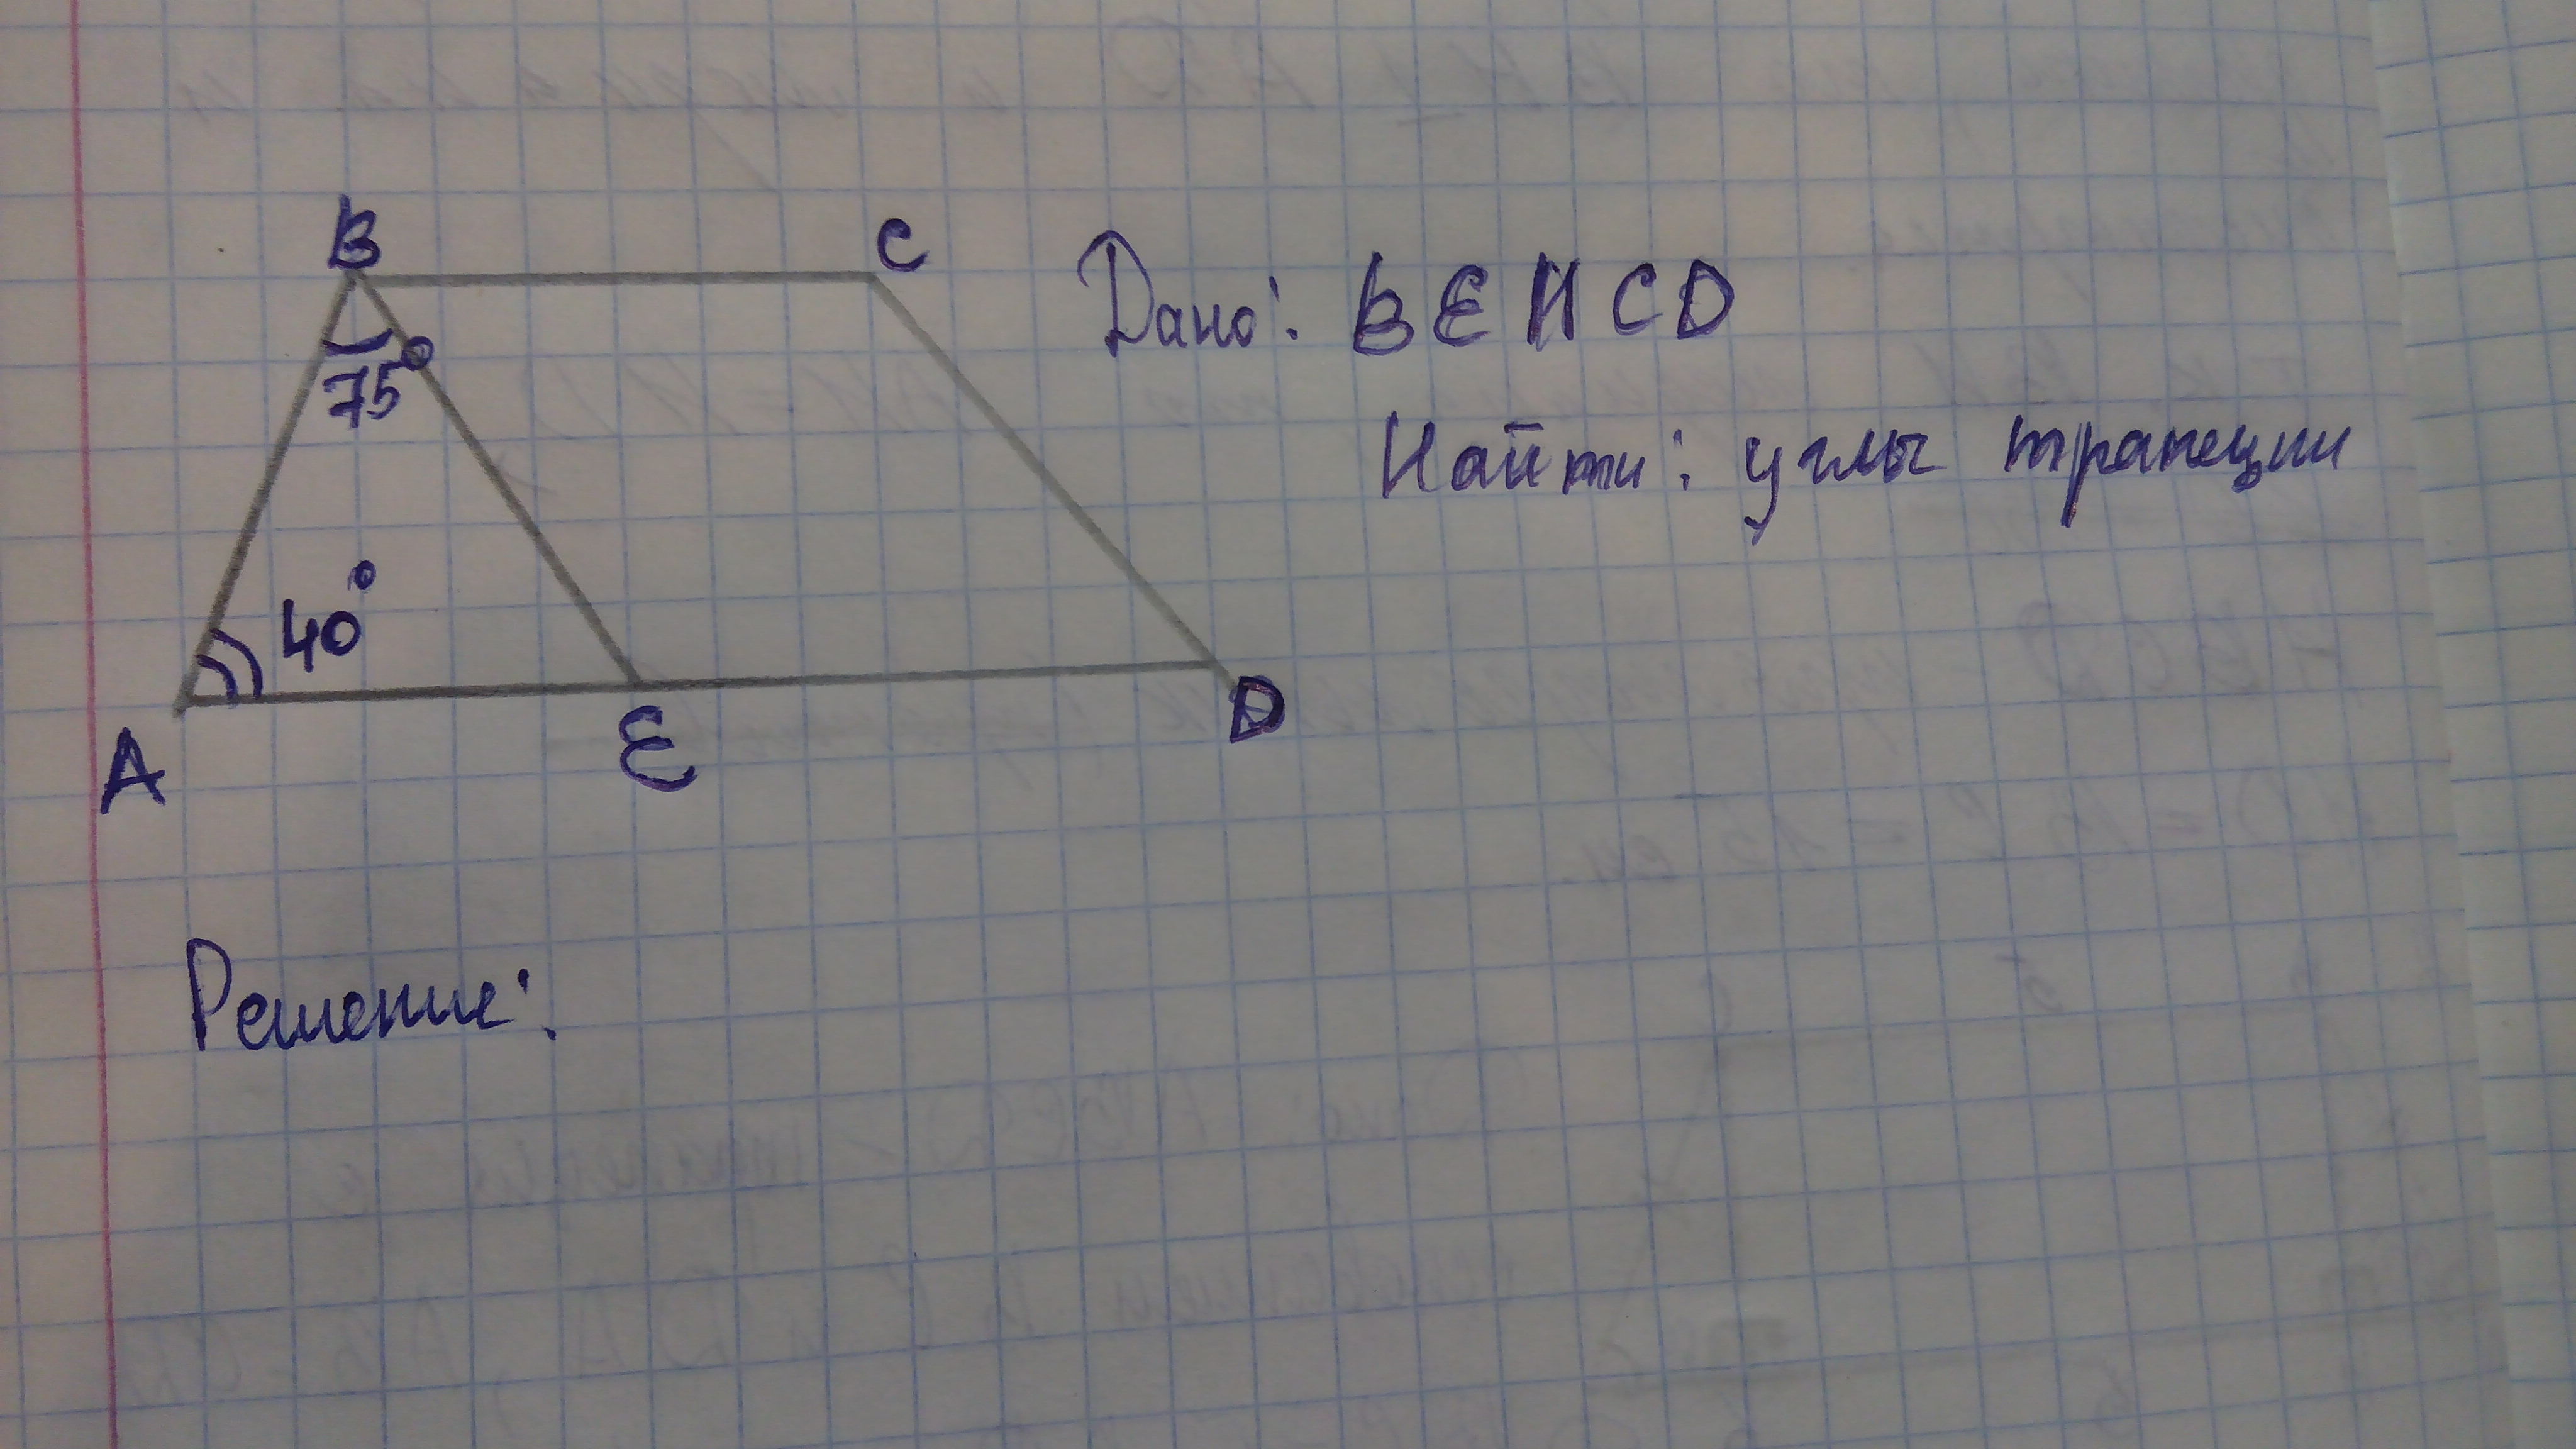 B C
Дано: BE || CD
75°
Найти: углы трапеции
40°
A E D
Решение: